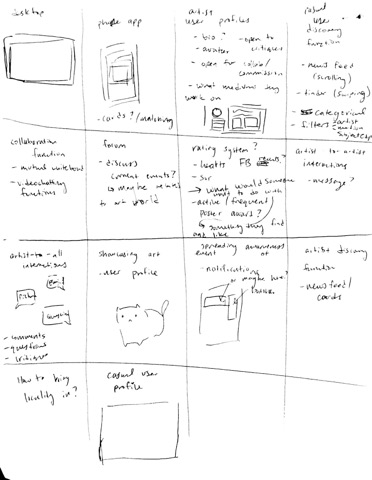 desktop
phone app
- cards? / matching
artist
user profiles
- bio? - open to
- avatar critiques
- open for collab/
commission
- what mediums they
work on
casual
use
discovery
function
- news feed
(scrolling)
- tinder (swiping)
- categorical
- filters artist
medium
subject
collaboration
function
- mutual whiteboard
- videochatting
functions
forum
- discuss
current events?
maybe
to art world
rating system?
- hearts FB
- what would someone
want to do with
- active/frequent
poster award?
something they find
artist-to-artist
interactions
- message?
artist-to-all
interactions
- comments
- questions
- critiques
showcasing art
- user profile
spreading awareness
event of
- notifications
or maybe here?
artist discovery
function
- newsfeed/
cards
How to bring
locality in?
casual user
profile